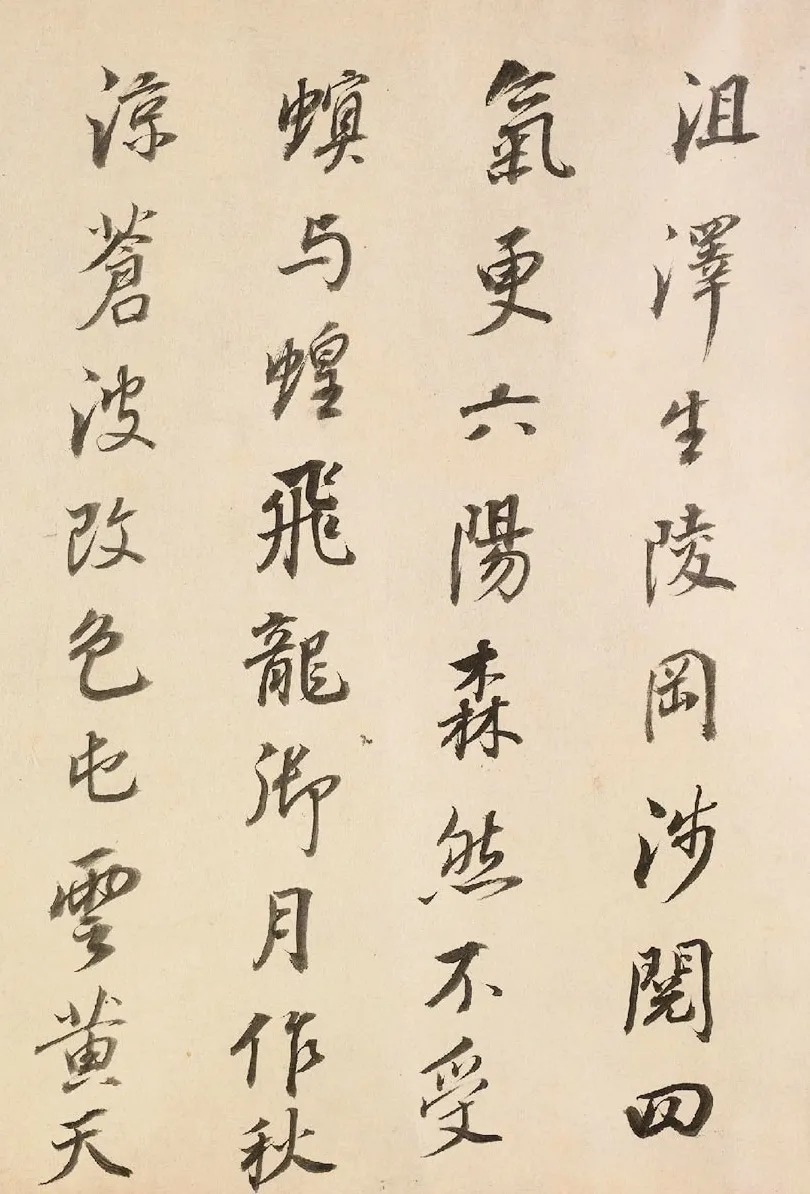 沮澤生陵岡涉閱四
氣更六陽森然不受
螟与蝗飛龍御月作秋
涼蒼波改色屯雲黄天